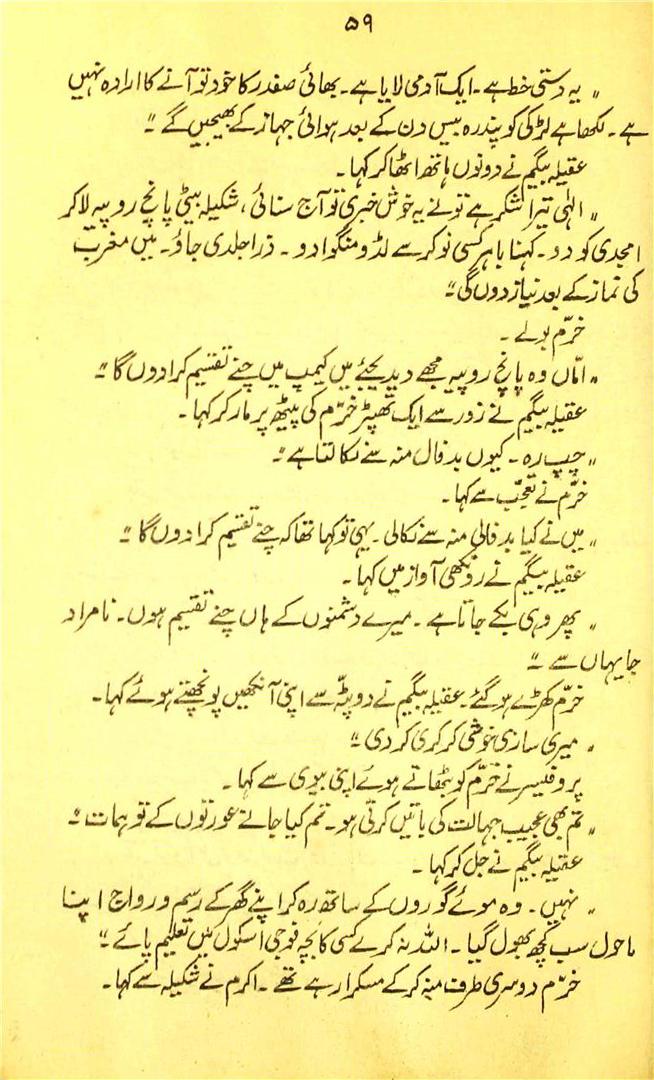 ۵۹
"یہ دستی خط ہے۔ ایک آدمی لایا ہے۔ بھائی صفدر کا خود تو آنے کا ارادہ نہیں
ہے۔ لکھا ہے لڑکی کو پندرہ بیس دن کے بعد ہوائی جہاز کے بھیجیں گے"
عقیلہ بیگم نے دونوں ہاتھ اٹھا کر کہا۔
"الٰہی تیرا شکر ہے تو نے یہ خوش خبری تو آج سنائی، شکیلہ بیٹی پانچ روپیہ لا کر
امجدی کو دو۔ کہنا باہر کسی نوکر سے لڈو منگوا دو۔ ذرا جلدی جاؤ۔ میں مغرب
کی نماز کے بعد نیاز دوں گی"
خرّم بولے۔
"امّاں وہ پانچ روپیہ مجھے دیدیجئے میں کیمپ میں چنے تقسیم کرا دوں گا"
عقیلہ بیگم نے زور سے ایک تھپڑ خرّم کی پیٹھ پر مار کر کہا۔
"چپ رہ۔ کیوں بد فال منہ سے نکالتا ہے"
خرّم نے تعجّب سے کہا۔
"میں نے کیا بد فالی منہ سے نکالی۔ یہی تو کہا تھا کہ چنے تقسیم کرا دوں گا"
عقیلہ بیگم نے رونکھی آواز میں کہا۔
"پھر وہی بکے جاتا ہے۔ میرے دشمنوں کے ہاں چنے تقسیم ہوں۔ نامراد
جا یہاں سے"
خرّم کھڑے ہو گئے۔ عقیلہ بیگم نے دوپٹّہ سے اپنی آنکھیں پونچھتے ہوئے کہا۔
"میری ساری خوشی کرکری کر دی"
پروفیسر نے خرّم کو بٹھاتے ہوئے اپنی بیوی سے کہا۔
"تم بھی عجیب جہالت کی باتیں کرتی ہو۔ تم کیا جانے عورتوں کے توہمات"
عقیلہ بیگم نے جل کر کہا۔
"نہیں۔ وہ موئے گوروں کے ساتھ رہ کر اپنے گھر کے رسم و رواج اپنا
ماحول سب کچھ بھول گیا۔ اللہ نہ کرے کسی کا بچہ فوجی اسکول میں تعلیم پائے"
خرّم دوسری طرف منہ کر کے مسکرا رہے تھے۔ اکرم نے شکیلہ سے کہا۔